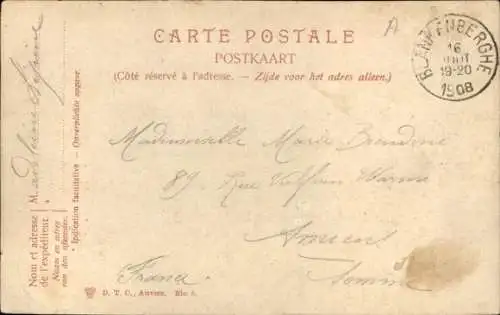 CARTE POSTALE
POSTKAART
(Côté réservé à l'adresse. — Zijde voor het adres alleen.)
A
BLANKENBERGHE
16
AOUT
19-20
1908
Mademoiselle Marie
89 Rue Vulfran Warne
Amiens
Somme
France
D. T. C., Anvers.
M.
Nom et adresse
de l'expéditeur
Naam en adres
van den afzender.
* Indication facultative — Onverplichte opgave.